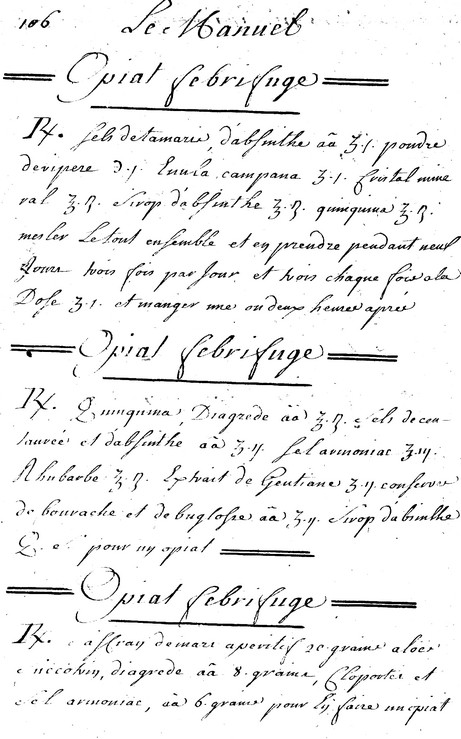 106 Le Manuel
Opiat febrifuge
Rx. sels de tamaris, d'absinthe āā ʒ.j. poudre
de vipere Э.j. Enula campana ʒ.j. Cristal mine
ral ʒ.ß. Sirop d'absinthe ʒ.ß. quinquina ʒ.ß.
mesler Le tout ensemble et en prendre pendant neuf
Jours trois fois par Jour et trois chaque fois a la
Dose ʒ.j. et manger une ou deux heures aprés
Opiat febrifuge
Rx. Quinquina, Diagrede āā ʒ.ß. sels de cen-
taurée et d'absinthe āā ʒ.ij. sel armoniac ʒ.iij.
Rhubarbe ʒ.ß. Extrait de Gentiane ʒ.ij. conserve
de bourache et de buglosse āā ʒ.ij. Sirop d'absinthe
Q. pour un opiat
Opiat febrifuge
Rx. de mars aperitif grains aloës
diagrede āā 8. grains, Cloportes et
Sel armoniac, āā 6. grains pour faire un opiat